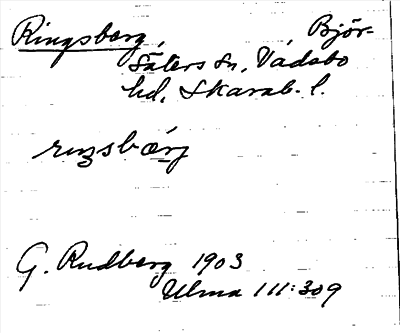 Ringsberg, Björ-
säters sn, Vadsbo
hd, Skarab. l.
G. Rudberg 1903
Ulma 111:309